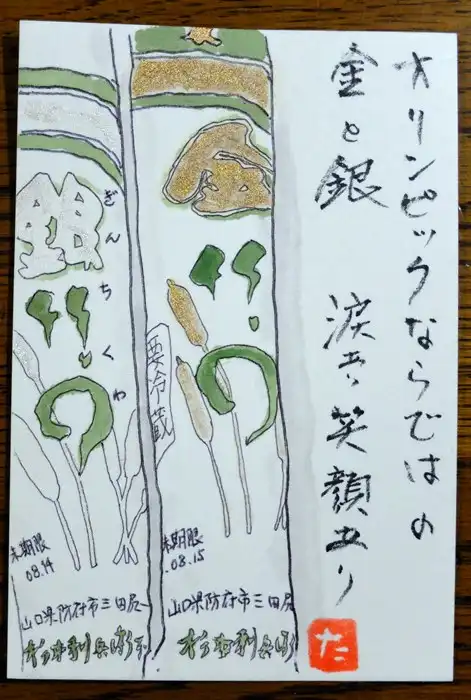 オリンピックならではの
金と銀 涙あり笑顔あり
た
金
ちくわ
要冷蔵
味期限
.08.15
山口県防府市三田尻
杉本利兵衛
銀
ぎんちくわ
ちくわ
味期限
08.14
山口県防府市三田尻
杉本利兵衛